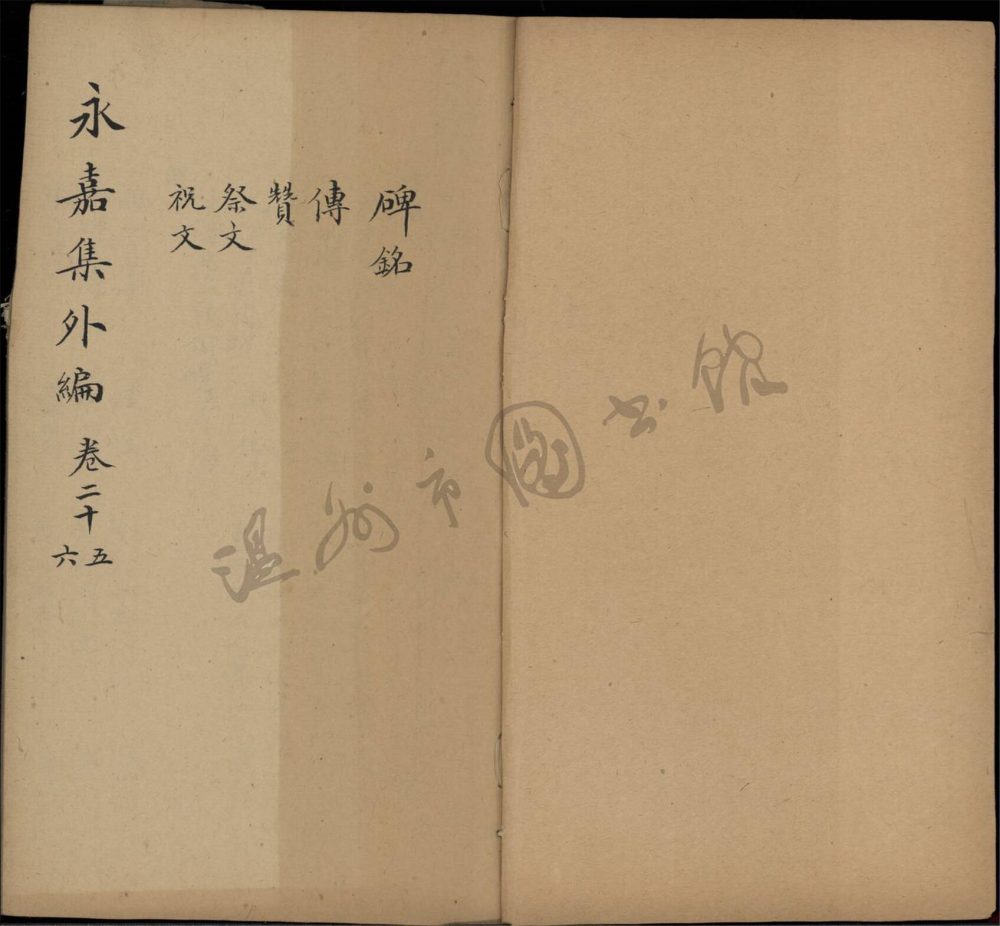 碑銘
傳
贊
祭文
祝文
永嘉集外編 卷二十五六
温州市圖书館